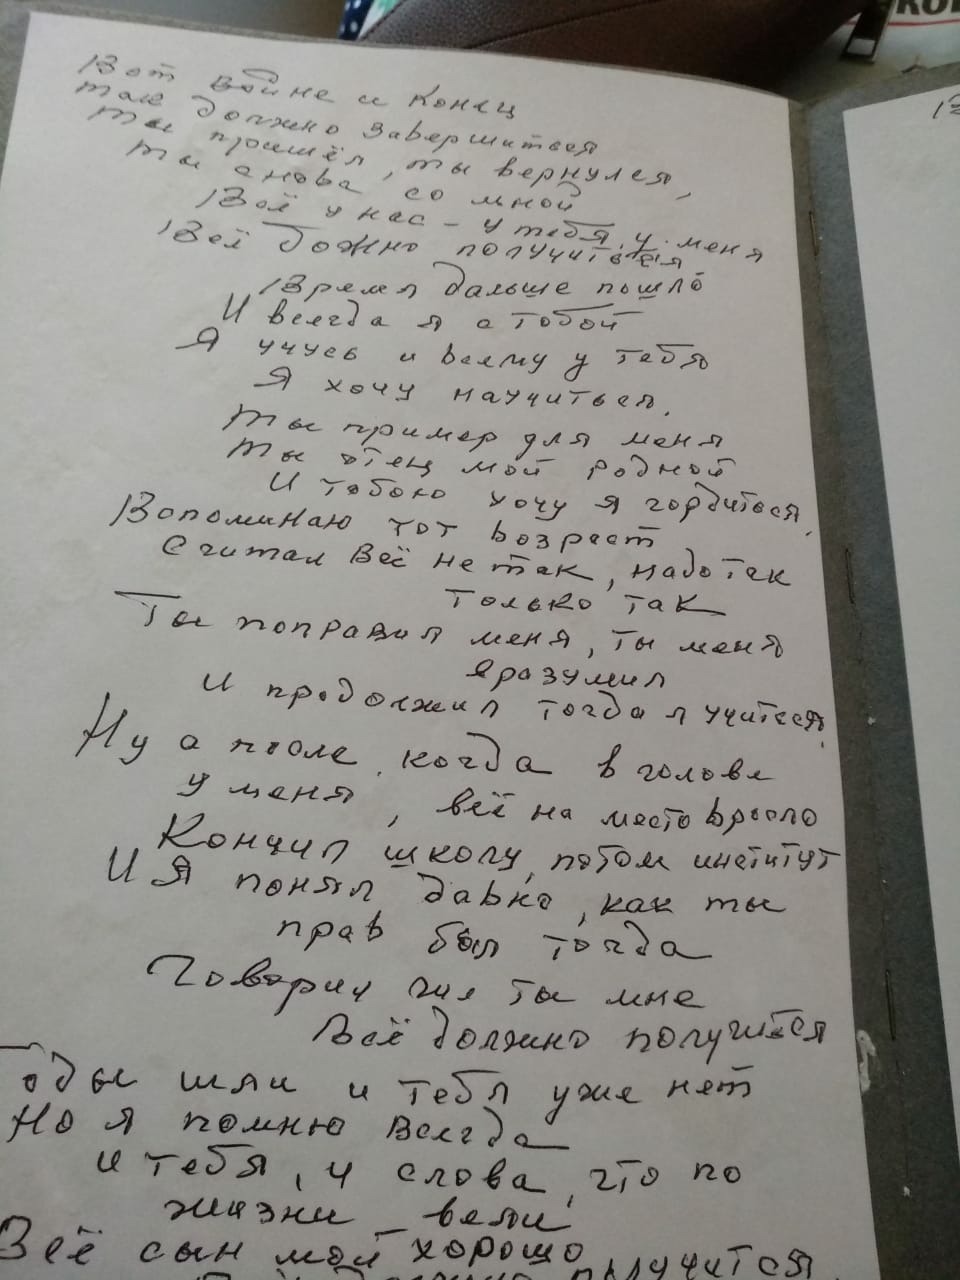 КОН
Вот войне и конец
так должно завершиться
ты пришёл, ты вернулся,
ты снова со мной
Всё у нас - у тебя, у меня
Всё должно получиться
Время дальше пошло
И всегда я с тобой
Я учусь и всему у тебя
Я хочу научиться.
Ты пример для меня
Ты отец мой родной
И тобою хочу я гордиться.
Вспоминаю тот возраст
Считал всё не так, надо так
только так
Ты поправил меня, ты меня
вразумил
И продолжил тогда я учиться.
Ну а после, когда в голове
у меня, всё на место вросло
Кончил школу, потом институт
И Я понял давно, как ты
прав был тогда
Говорил ты мне
Всё должно получиться
Годы шли и тебя уже нет
Но я помню всегда
и тебя, и слова, что по
жизни вели
Всё сын мой хорошо
получится